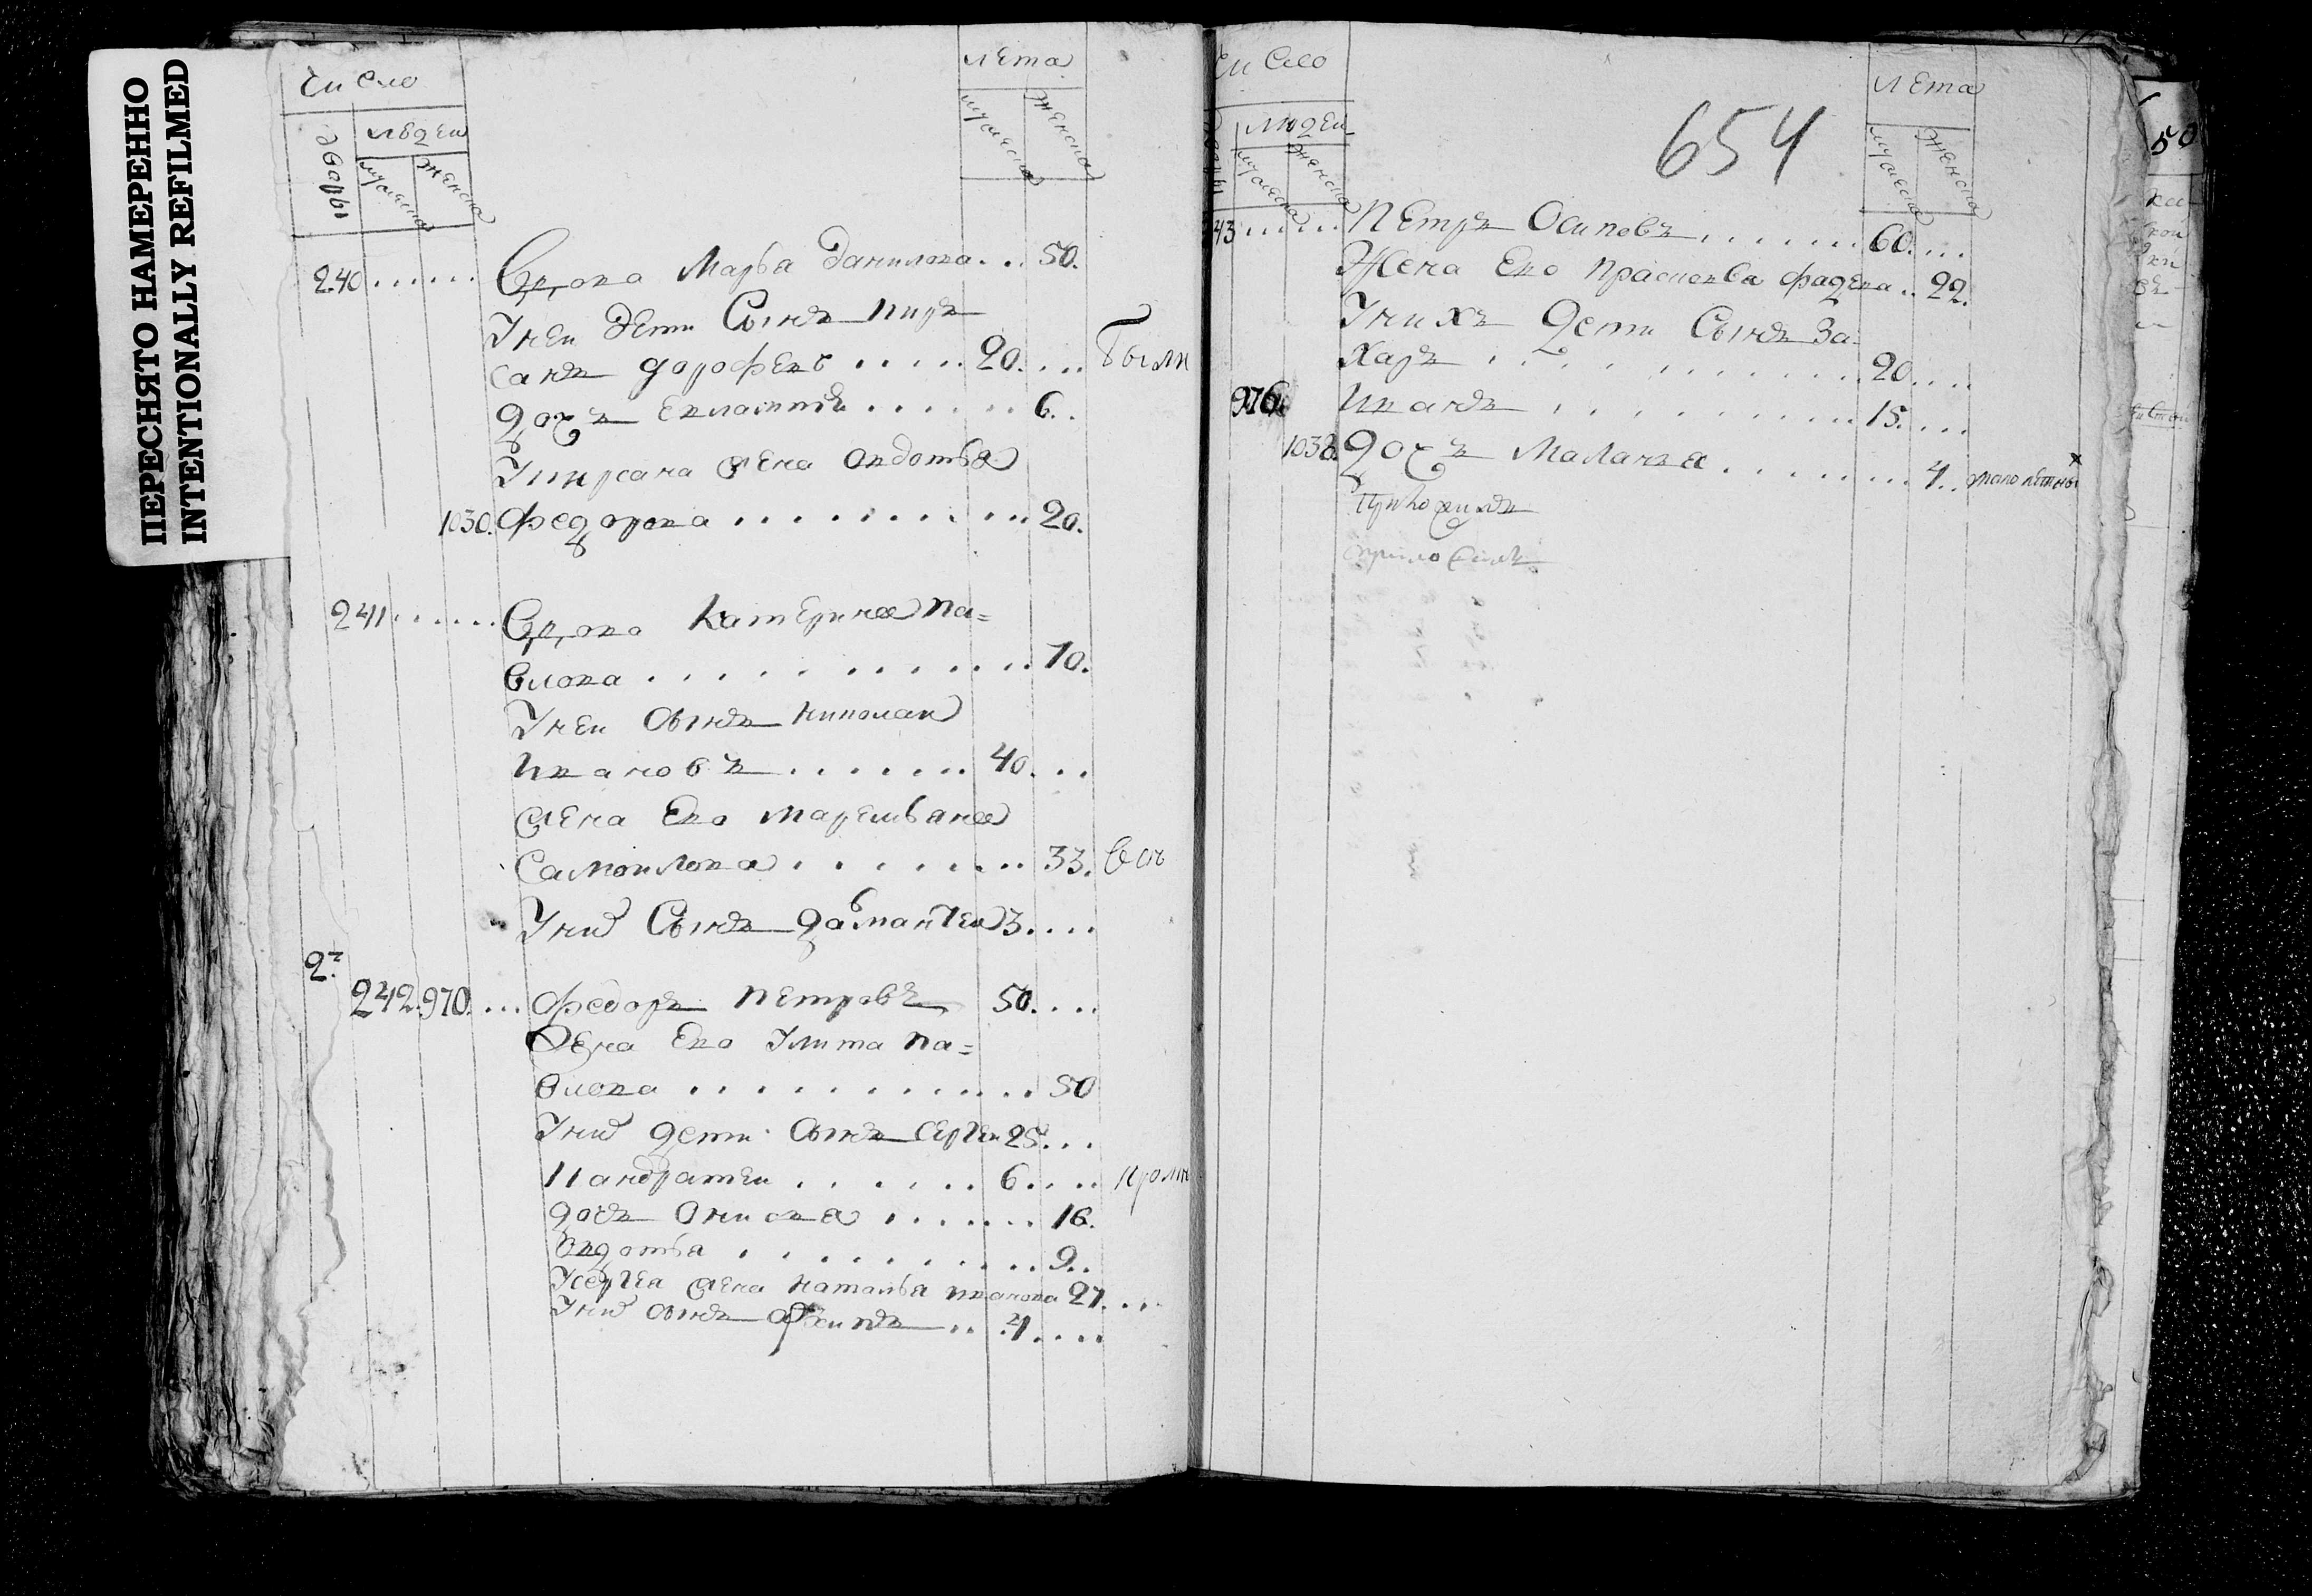 ПЕРЕСНЯТО НАМЕРЕННО
INTENTIONALLY REFILMED
Число
Дворы
людеи
мужеска
женска
лета
мужеска
женска
240...... Вдова Марья Данилова... 50.
У неи дети Сынъ Кир
санъ дорофеевъ..... 20....
дочь ....... 6..
У Кирсана жена Авдотья
1030. федорова........... 20.
241...... Вдова Катерина Па=
влова............. 70.
У неи Сынъ николаи
Ивановъ....... 40...
жена Ево маремьяна
Самоилова........ 33.
У них Сынъ дамантеи 3....
2
242. 970.... федоръ петровъ 50....
Жена Ево Улита па=
влова............ 50
У них дети Сынъ сергеи 25...
Кандратеи....... 6....
дочь Анисья....... 16.
Авдотья......... 9..
У сергея жена наталья иванова 27...
У них сынъ архипъ.. 4....
Число
людеи
мужеска
женска
654
лета
мужеска
женска
43...... Петръ Осиповъ....... 60....
Жена Ево Прасковья фадеева.. 22.
У нихъ дети Сынъ За-
харъ........... 20....
976. Иванъ.......... 15....
1038. дочь Маланья........ 4..
50